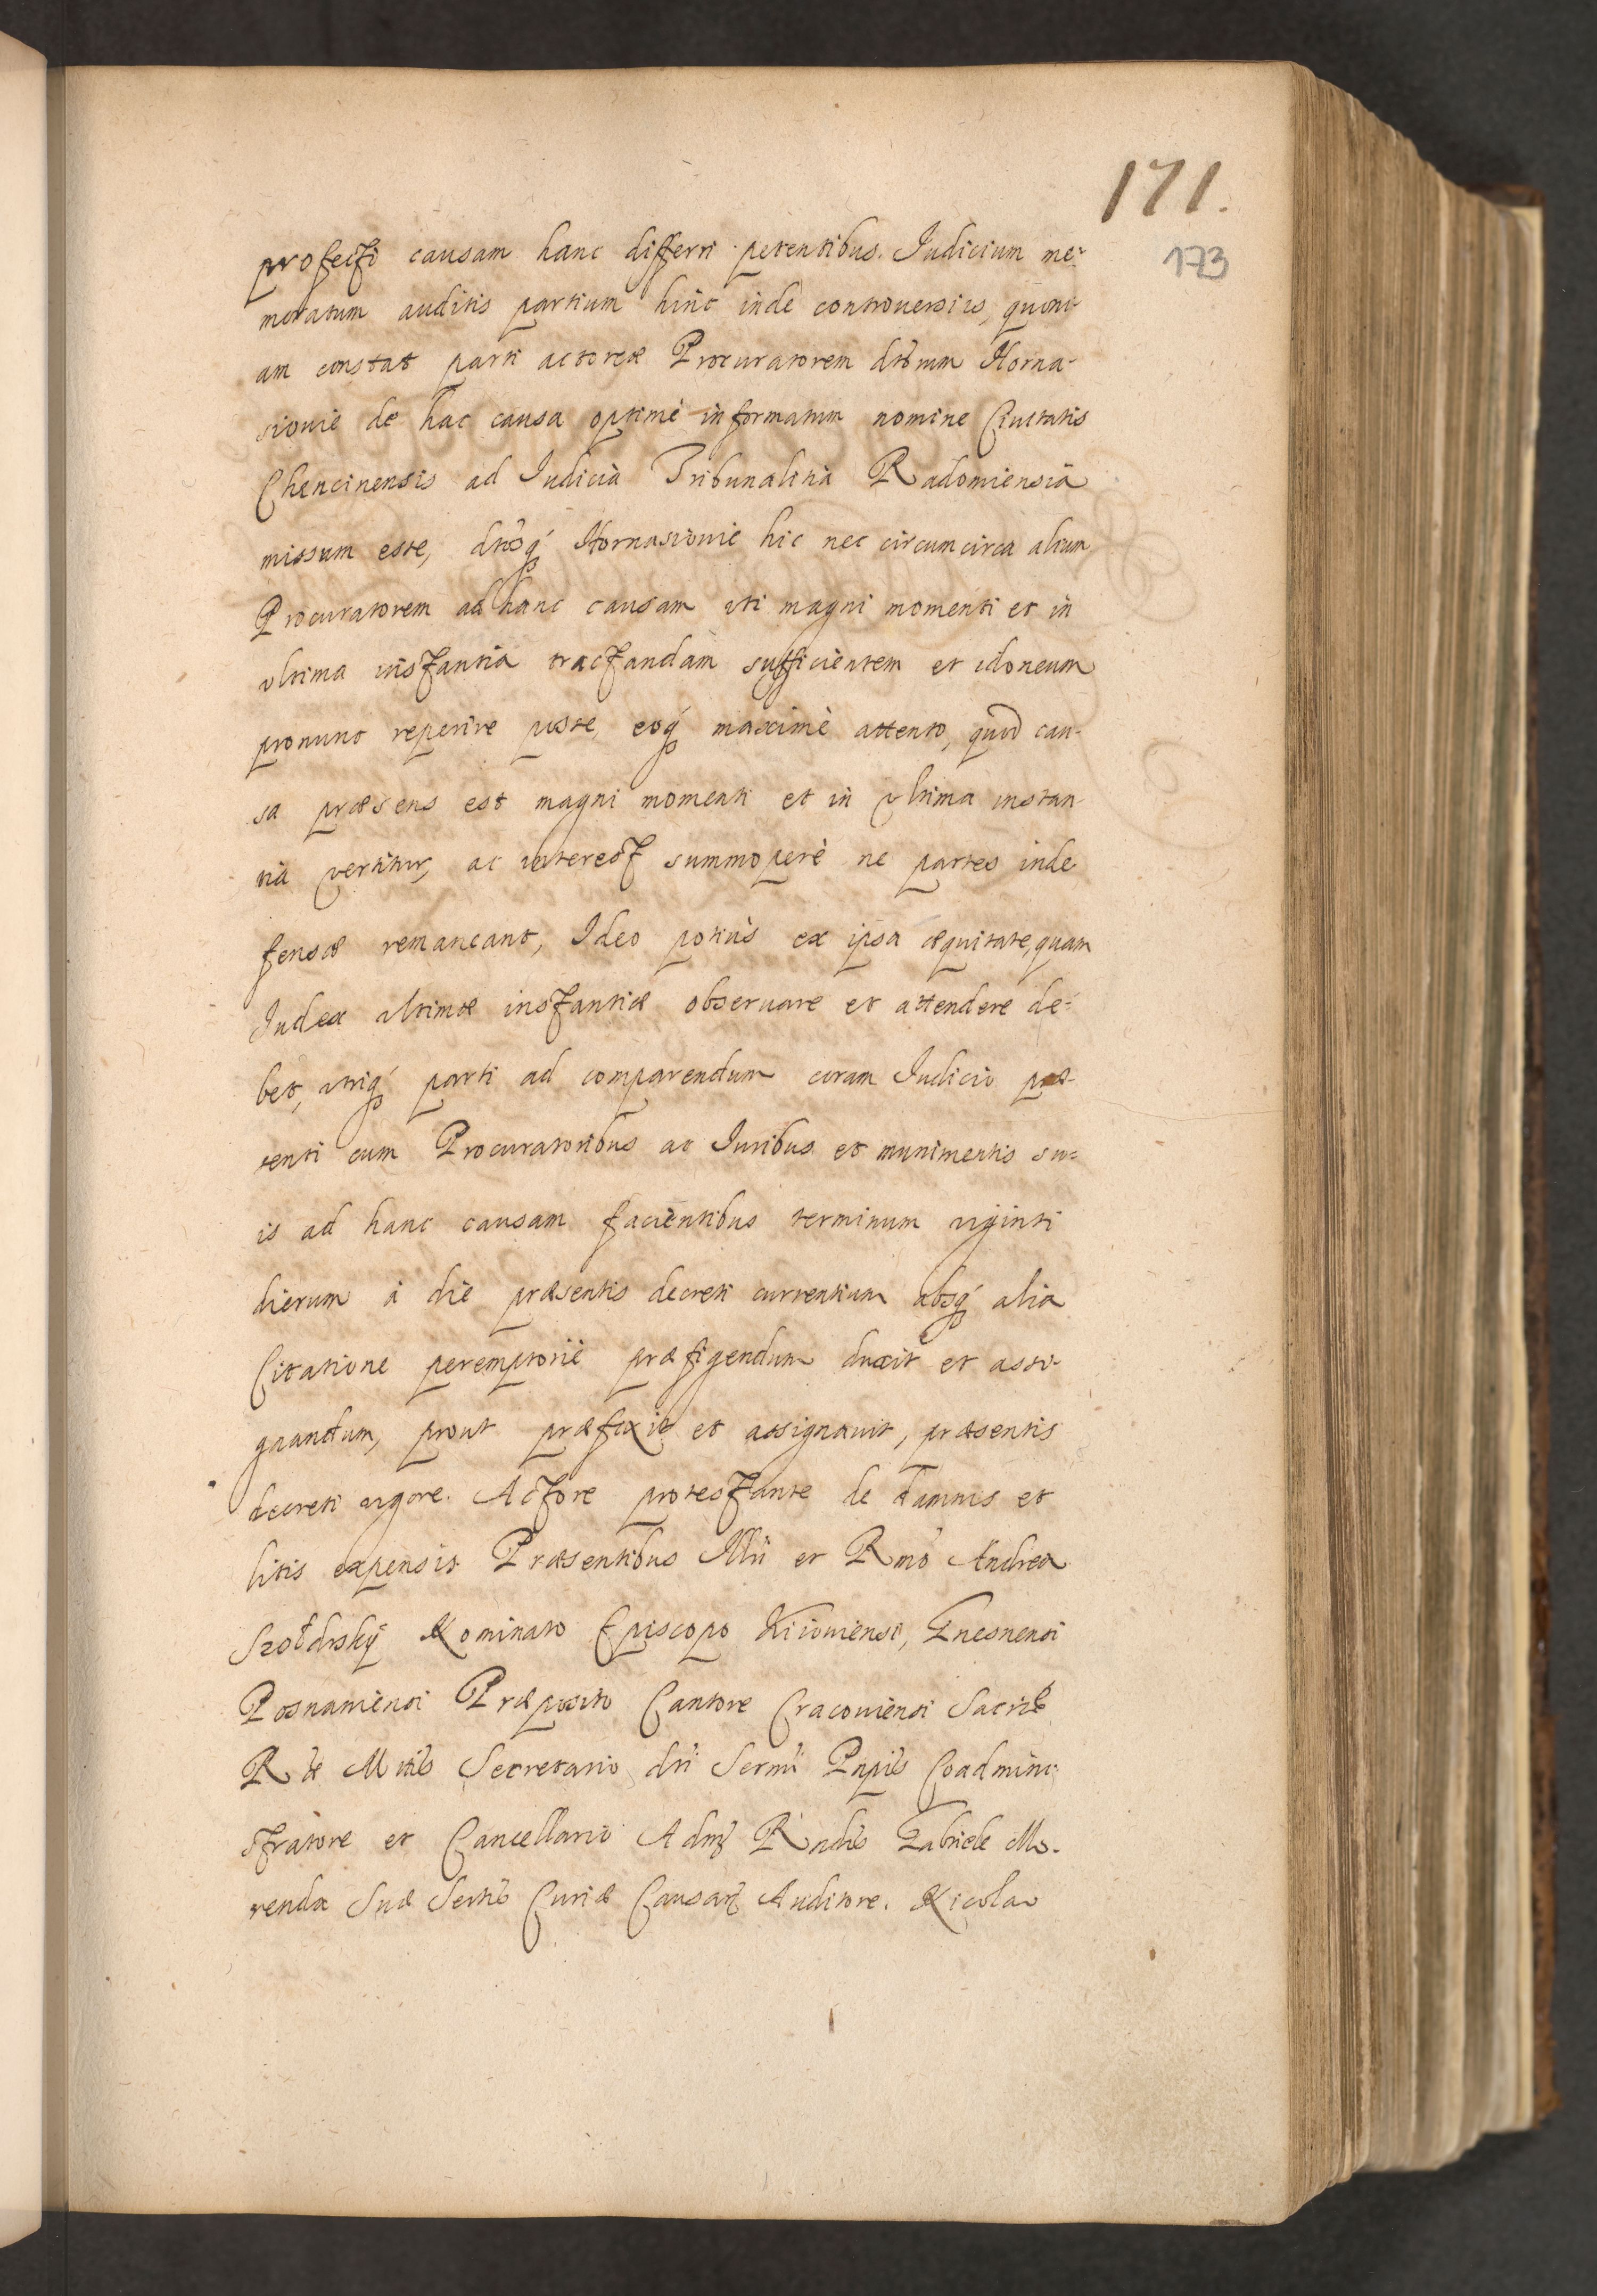 171.
173
profecti causam hanc differri petentibus. Judicium me-
moratum auditis partium hinc inde controuersiis, quoni-
am constat parti actoreæ Procuratorem dtorum Horna-
siouie de hac causa optimè informatum nomine Ciuitatis
Chencinensis ad Judicia Tribunalitia Radomiensia
missum esse, dtosq́ Hornasiouie hic nec circumcirca alium
Procuratorem ad hanc causam uti magni momenti et in
vltima instantia tractandam sufficientem et idoneum
pronunc reperire posse, eoq́ maximè attento, quod cau-
sa præsens est magni momenti et in vltima instan-
tia vertitur, ac interest summoperè ne partes inde
fensæ remaneant, Ideo potius ex ipsa æquitate, quam
Judex vltimæ instantiæ obseruare et attendere de-
bet, vtriq́ parti ad comparendum coram Judicio præ-
senti cum Procuratoribus ac Juribus et munimentis su-
is ad hanc causam facientibus terminum viginti
dierum à die præsentis decreti currentium absq́ alia
Citatione peremptoriè præfigendum duxit et assi-
gnandum, prout præfixit et assignauit, præsentis
decreti vigore. Actore protestante de damnis et
litis expensis Præsentibus Illri et Rmo Andrea
Szołdrskÿ Nominato Episcopo Kiiouiensi, Gnesnensi
Posnaniensi Præposito Cantore Cracouiensi Sacræ
Ræ Mttis Secretario, dni Sermi Pnpis Coadmini-
stratore et Cancellario Adm Rndis Gabriele Me-
renda Suæ Sertis Curiæ Causar Auditore. Nicolao